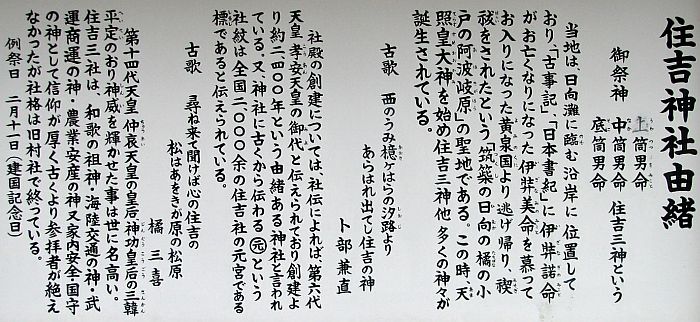 住吉神社由緒
御祭神
上筒男命
中筒男命 住吉三神という
底筒男命
当地は、日向灘に臨む沿岸に位置して
おり、「古事記」、「日本書記」に伊弉諾命
がお亡くなりになった伊弉美命を慕って
お入りになった黄泉国より逃げ帰り、禊
祓をされたという「筑紫の日向の橘の小
戸の阿波岐原」の聖地である。この時、天
照皇大神を始め住吉三神他、多くの神々が
誕生されている。
古歌 西のうみ檍ヶはらの汐路より
あらはれ出てし住吉の神
卜部兼直
社殿の創建については、社伝によれば、第六代
天皇孝安天皇の御代と伝えられており創建よ
り約二四〇〇年という由緒ある神社と言われ
ている。又、神社に古くから伝わる㊒という
社紋は全国二〇〇〇余の住吉社の元宮である
標であると伝えられている。
古歌 尋ね来て聞けば心の住吉の
松はあをきが原の松原
橘三喜
第十四代天皇仲哀天皇の皇后、神功皇后の三韓
平定のおり神威を輝かせた事は世に名高い。
住吉三社は、和歌の祖神・海陸交通の神・武
運商運の神・農業安産の神又家内安全・国守
の神として信仰が厚く古くより参拝者が絶え
なかったが社格は旧村社で終っている。
例祭日 二月十一日(建国記念日)